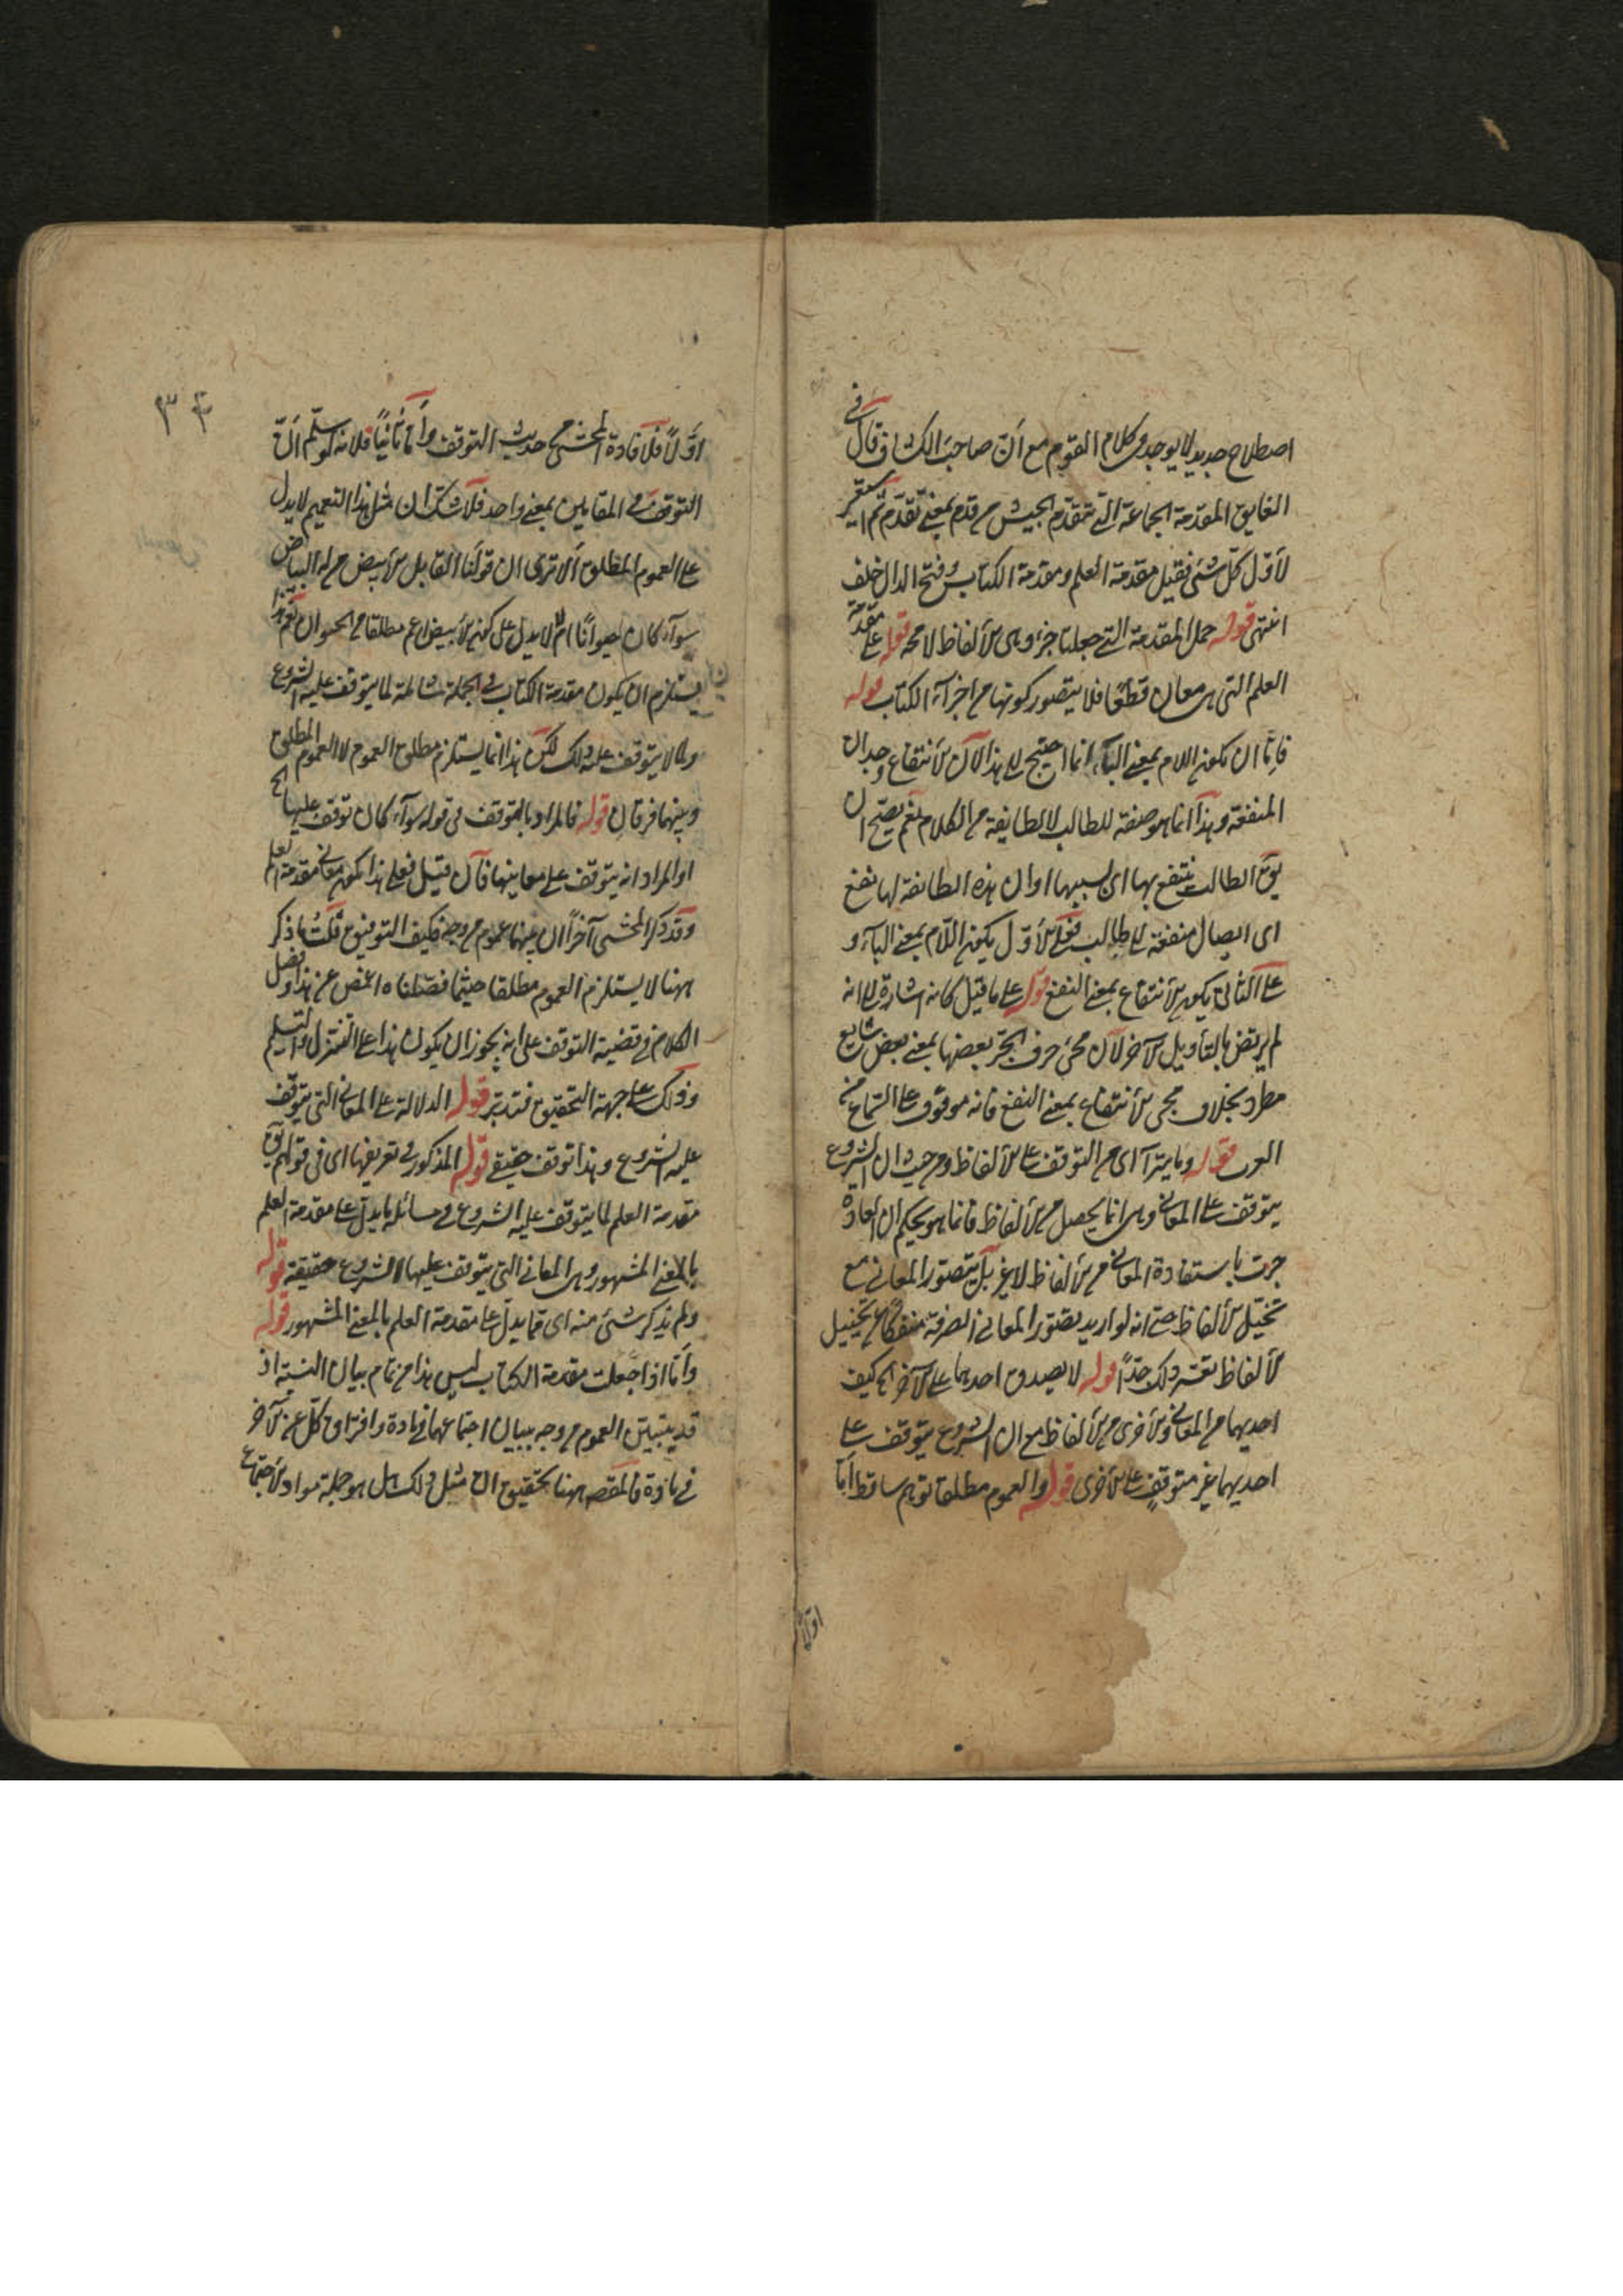 اصطلاح جديد لا يوجد في كلام القوم مع ان صاحب الكشاف قال في
الفايق المقدمة الجماعة التي تتقدم الجيش من قدم بمعنى تقدم ثم استعير
لأول كل شئ فقيل مقدمة العلم ومقدمة الكتاب وفتح الدال خلف
انتهى قوله حمل المقدمة التي جعلت جزء وهي الألفاظ لا محة قوله على مقدمة
العلم التي هي معان قطعا فلا يتصور كونها من اجزاء الكتاب قوله
فاما ان يكون اللام بمعنى الباء انما احتيج الى هذا لان الانتفاع وجدان
المنفعة وهذا انما هو صفة للطالب لا لطايفة من الكلام نعم يصح ان
يق الطالب ينتفع بها اى بسببها او ان هذه الطائفة لها نفع
اى ايصال منفعة الى طالب فعلى الأول يكون اللام بمعنى الباء و
على الثاني يكون الانتفاع بمعنى النفع قوله على ما قيل كانه اشارة الى انه
لم يرتض بالتأويل الآخر لان مجئ حرف الجر بعضها بمعنى بعض شايع
مطرد بخلاف مجئ الانتفاع بمعنى النفع فانه موقوف على السماع من
العرب قوله وما يتراآى من التوقف على الألفاظ من حيث ان الشروع
يتوقف على المعاني وهي انما يحصل من الألفاظ فانما هو بحكم ان العادة
جرت باستفادة المعاني من الألفاظ لا غير بل يتصور المعاني مع
تخيل الألفاظ حتى انه لو اريد تصور المعاني الصرفة منفكا عن تخييل
الألفاظ تعسر ذلك جدا قوله لا يصدق احدهما على الآخر الخ كيف
احديهما من المعاني والأخرى من الألفاظ مع ان الشروع يتوقف على
احديهما غير متوقف على الأخرى قوله والعموم مطلقا توهم ساقط اما
اولا
٣٣
اولا فلافادة المحشي حديث التوقف واما ثانيا فلانه لو سلم ان
التوقف في المقابلين بمعنى واحد فلا شك ان مثل هذا التعميم لا يدل
على العموم المطلق ألا ترى ان قولنا القابل الأبيض من له البياض
سواء كان حيوانا ام لا لا يدل على كون الأبيض اعم مطلقا من الحيوان نعم
يستلزم ان يكون مقدمة الكتاب في الجملة شاملة لما يتوقف عليه الشروع
ولما لا يتوقف عليه ذلك لكن هذا انما يستلزم مطلق العموم لا العموم المطلق
وبينهما فرقان قوله فالمراد بالتوقف في قوله سواء كان توقف عليها الخ
او المراد انه يتوقف على معاينها فان قيل فعلى هذا يكون معاني مقدمة العلم
وقد ذكر المحشي آخرا ان بينهما عموم من وجه فكيف التوفيق قلت ما ذكر
ههنا لا يستلزم العموم مطلقا حيثما فصلناه اغمض عن هذا وفصل
الكلام في قضية التوقف على انه يجوز ان يكون هذا على التنزل والتسليم
وذلك على جهة التحقيق فتدبر قوله الدلالة على المعاني التي يتوقف
عليه الشروع وهذا توقف حقيقي قوله المذكور في تعريفها اى في قولهم يق
مقدمة العلم لما يتوقف عليه الشروع في مسائله ما يدل على مقدمة العلم
بالمعنى المشهور وهي المعاني التي يتوقف عليها الشروع حقيقة قوله
ولم يذكر شئ منه اى مما يدل على مقدمة العلم بالمعنى المشهور قوله
واما اذا جعلت مقدمة الكتاب ليس هذا من تمام بيان النسبة اذ
قد يتبين العموم من وجه ببيان اجتماعهما في مادة وافتراق كل عن الآخر
في مادة فالمقصه ههنا تحقيق ان مثل ذلك هل هو جملة مواد الاجتماع